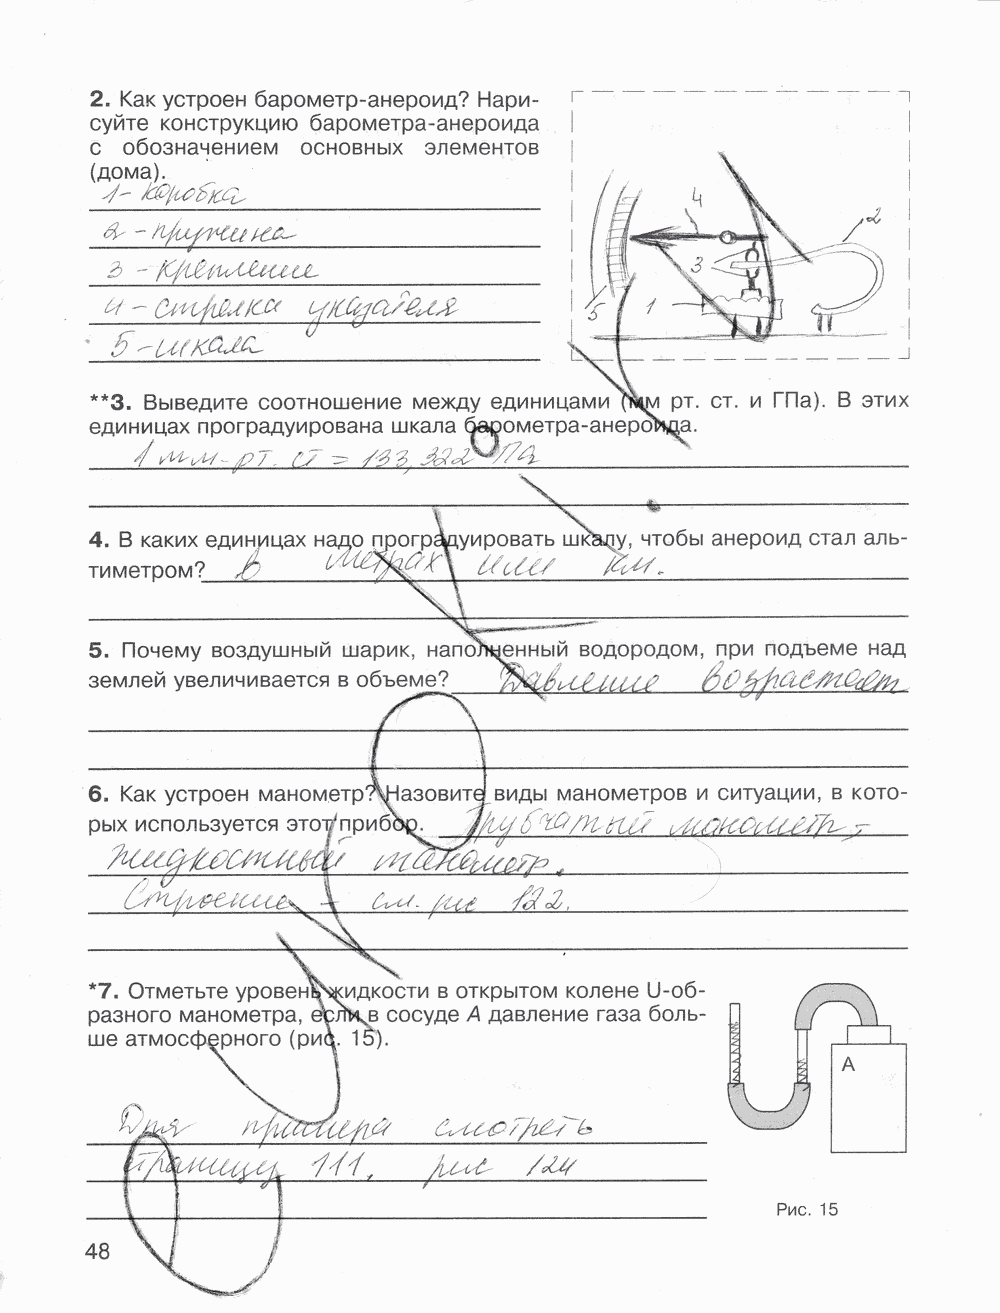 2. Как устроен барометр-анероид? Нари-
суйте конструкцию барометра-анероида
с обозначением основных элементов
(дома).
1 - коробка
2 - пружина
3 - крепление
4 - стрелка указателя
5 - шкала
4
2
3
5
1
**3. Выведите соотношение между единицами (мм рт. ст. и ГПа). В этих
единицах проградуирована шкала барометра-анероида.
1 мм. рт. ст = 133,322 Па
4. В каких единицах надо проградуировать шкалу, чтобы анероид стал аль-
тиметром? в метрах или км.
5. Почему воздушный шарик, наполненный водородом, при подъеме над
землей увеличивается в объеме? Давление возрастает
6. Как устроен манометр? Назовите виды манометров и ситуации, в кото-
рых используется этот прибор. Трубчатый манометр,
жидкостный манометр.
Строение - см. рис 122.
*7. Отметьте уровень жидкости в открытом колене U-об-
разного манометра, если в сосуде А давление газа боль-
ше атмосферного (рис. 15).
А
Для примера смотреть
страницу 111, рис 124
Рис. 15
48